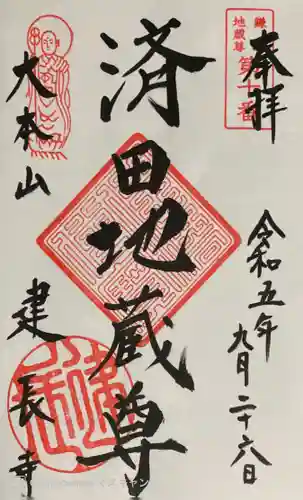 奉拝
鎌
地蔵尊
第十番
令和五年
九月二十六日
済田地蔵尊
大本山
建長寺